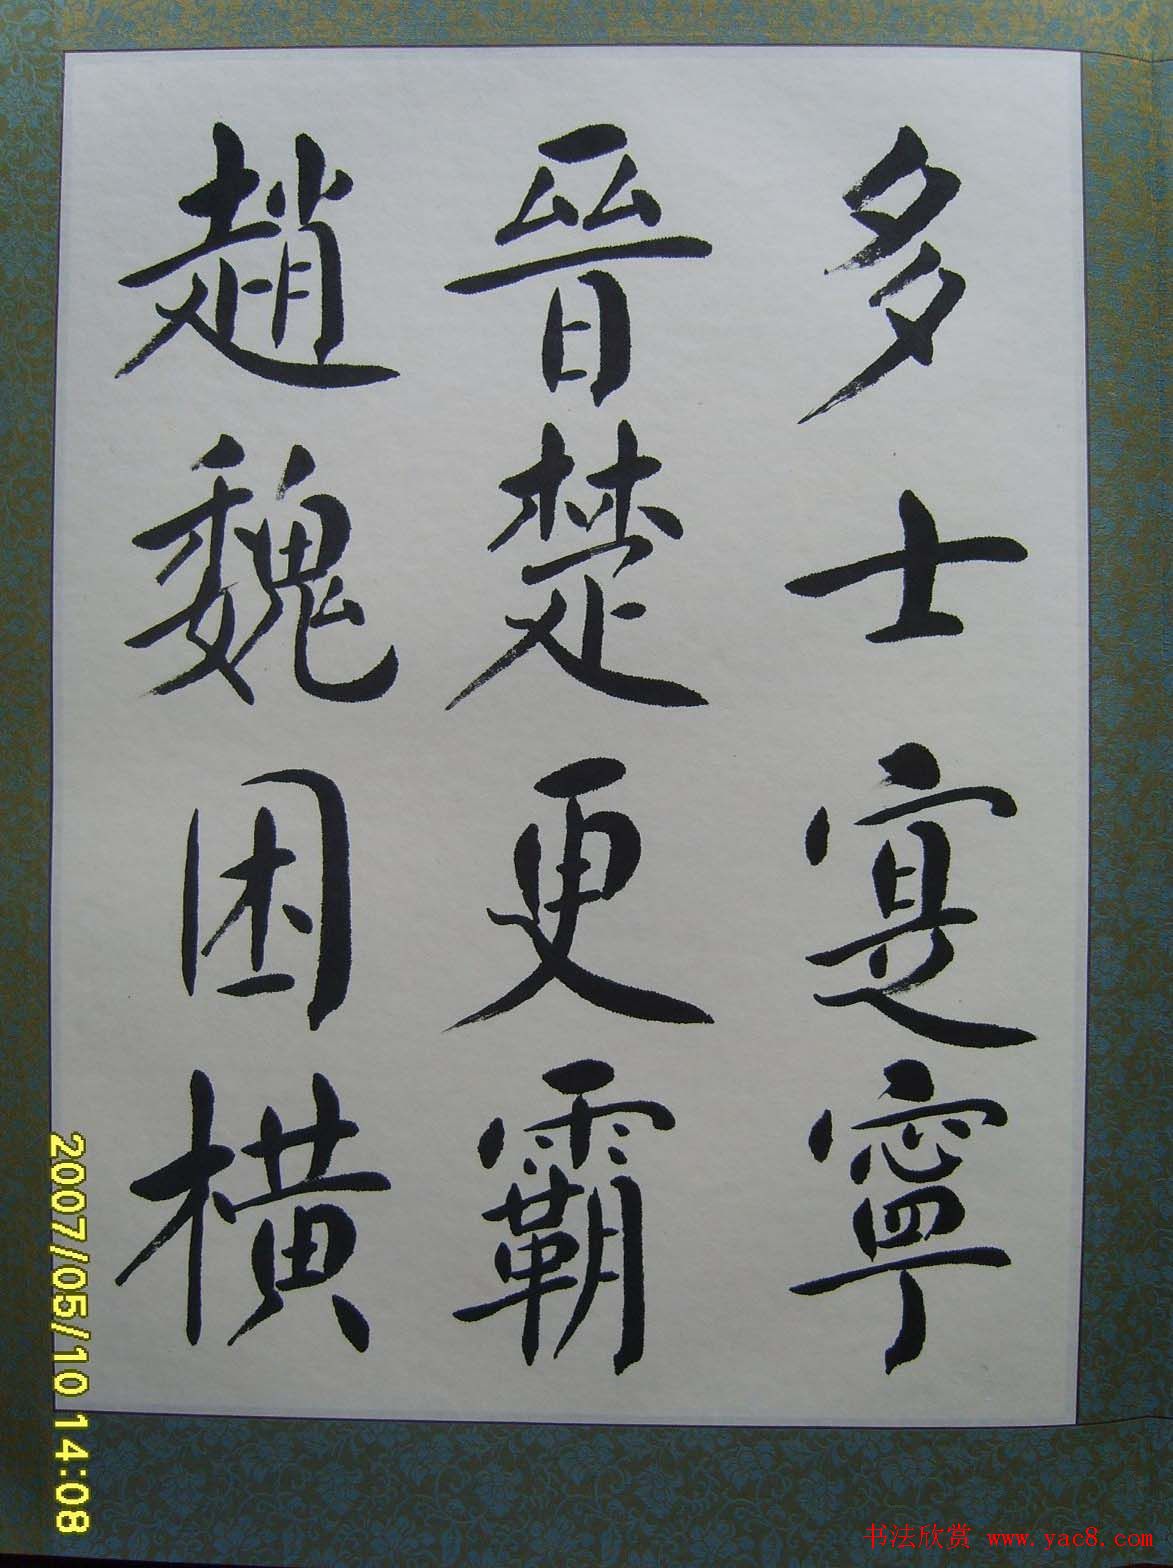 多士寔寧
晉楚更霸
趙魏困橫
2007/05/10 14:08
书法欣赏 www.yac8.com